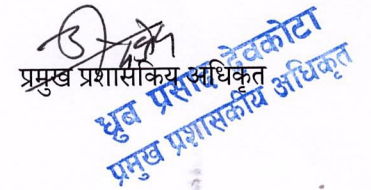 प्रमुख प्रशासकिय अधिकृत
ध्रुब प्रसाद देवकोटा
प्रमुख प्रशासकीय अधिकृत